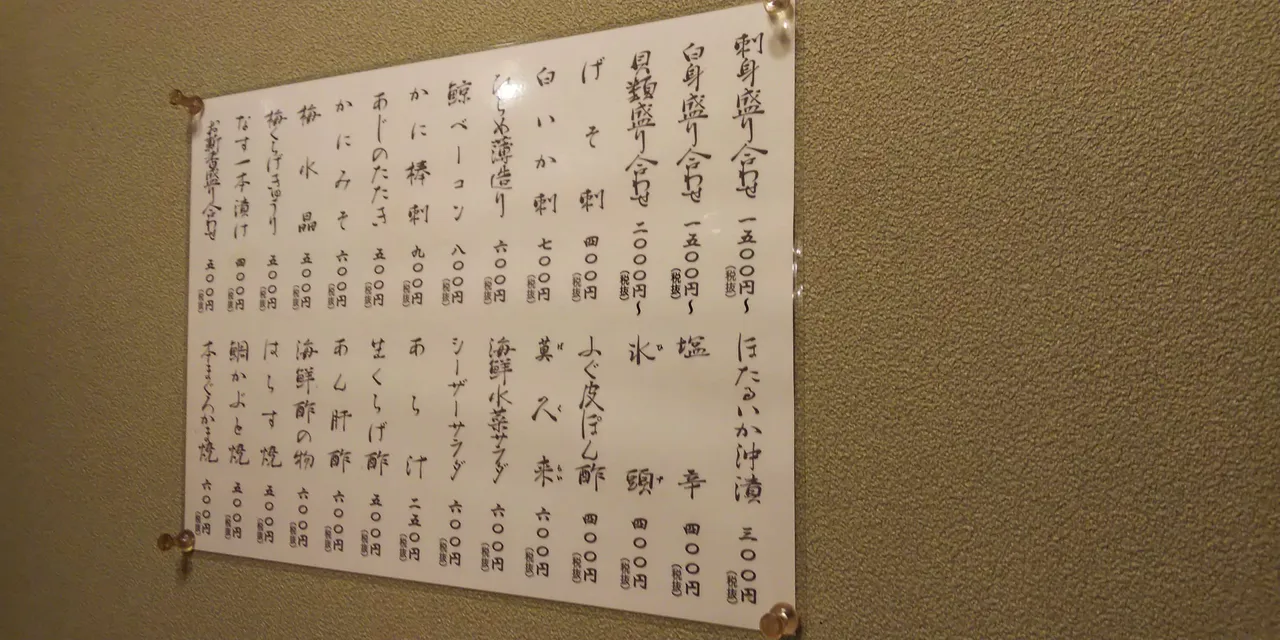 刺身盛り合わせ 一五〇〇円〜(税抜)
白身盛り合わせ 一五〇〇円〜(税抜)
貝類盛り合わせ 二〇〇〇円〜(税抜)
げそ刺 四〇〇円(税抜)
白いか刺 七〇〇円(税抜)
ひらめ薄造り 六〇〇円(税抜)
鯨ベーコン 八〇〇円(税抜)
かに棒刺 九〇〇円(税抜)
あじのたたき 五〇〇円(税抜)
かにみそ 六〇〇円(税抜)
梅水晶 五〇〇円(税抜)
梅くらげきゅうり 五〇〇円(税抜)
なす一本漬け 四〇〇円(税抜)
お新香盛り合わせ 五〇〇円(税抜)
ほたるいか沖漬 三〇〇円(税抜)
塩辛 四〇〇円(税抜)
氷頭 四〇〇円(税抜)
ふぐ皮ぽん酢 四〇〇円(税抜)
莫久来 六〇〇円(税抜)
海鮮水菜サラダ 六〇〇円(税抜)
シーザーサラダ 六〇〇円(税抜)
あら汁 二五〇円(税抜)
生くらげ酢 五〇〇円(税抜)
あん肝酢 六〇〇円(税抜)
海鮮酢の物 六〇〇円(税抜)
はらす焼 五〇〇円(税抜)
鯛かぶと焼 五〇〇円(税抜)
本まぐろかま焼 六〇〇円(税抜)